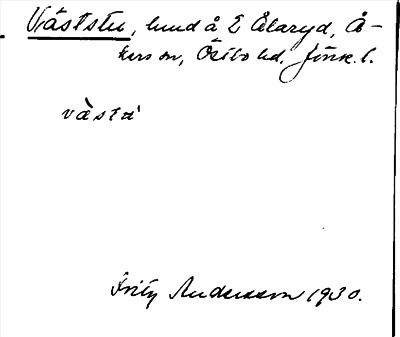 Väststu, hund å 2 Ålaryd, Å-
kers sn, Östbo hd. Jönk. l.
västa
Fritz Andersson 1930.